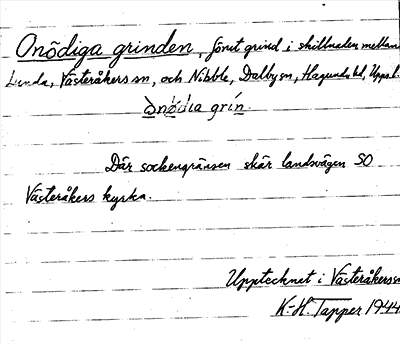 Onödiga grinden, förut grind i skillnaden mellan
Lunda, Västeråkers sn, och Nibble, Dalby sn, Hagunda hd, Uppsl.
ònö̀dia grín.
Där sockengränsen skär landsvägen SO
Västeråkers kyrka.
Upptecknat i Västeråkers sn
K.-H. Tapper 1944